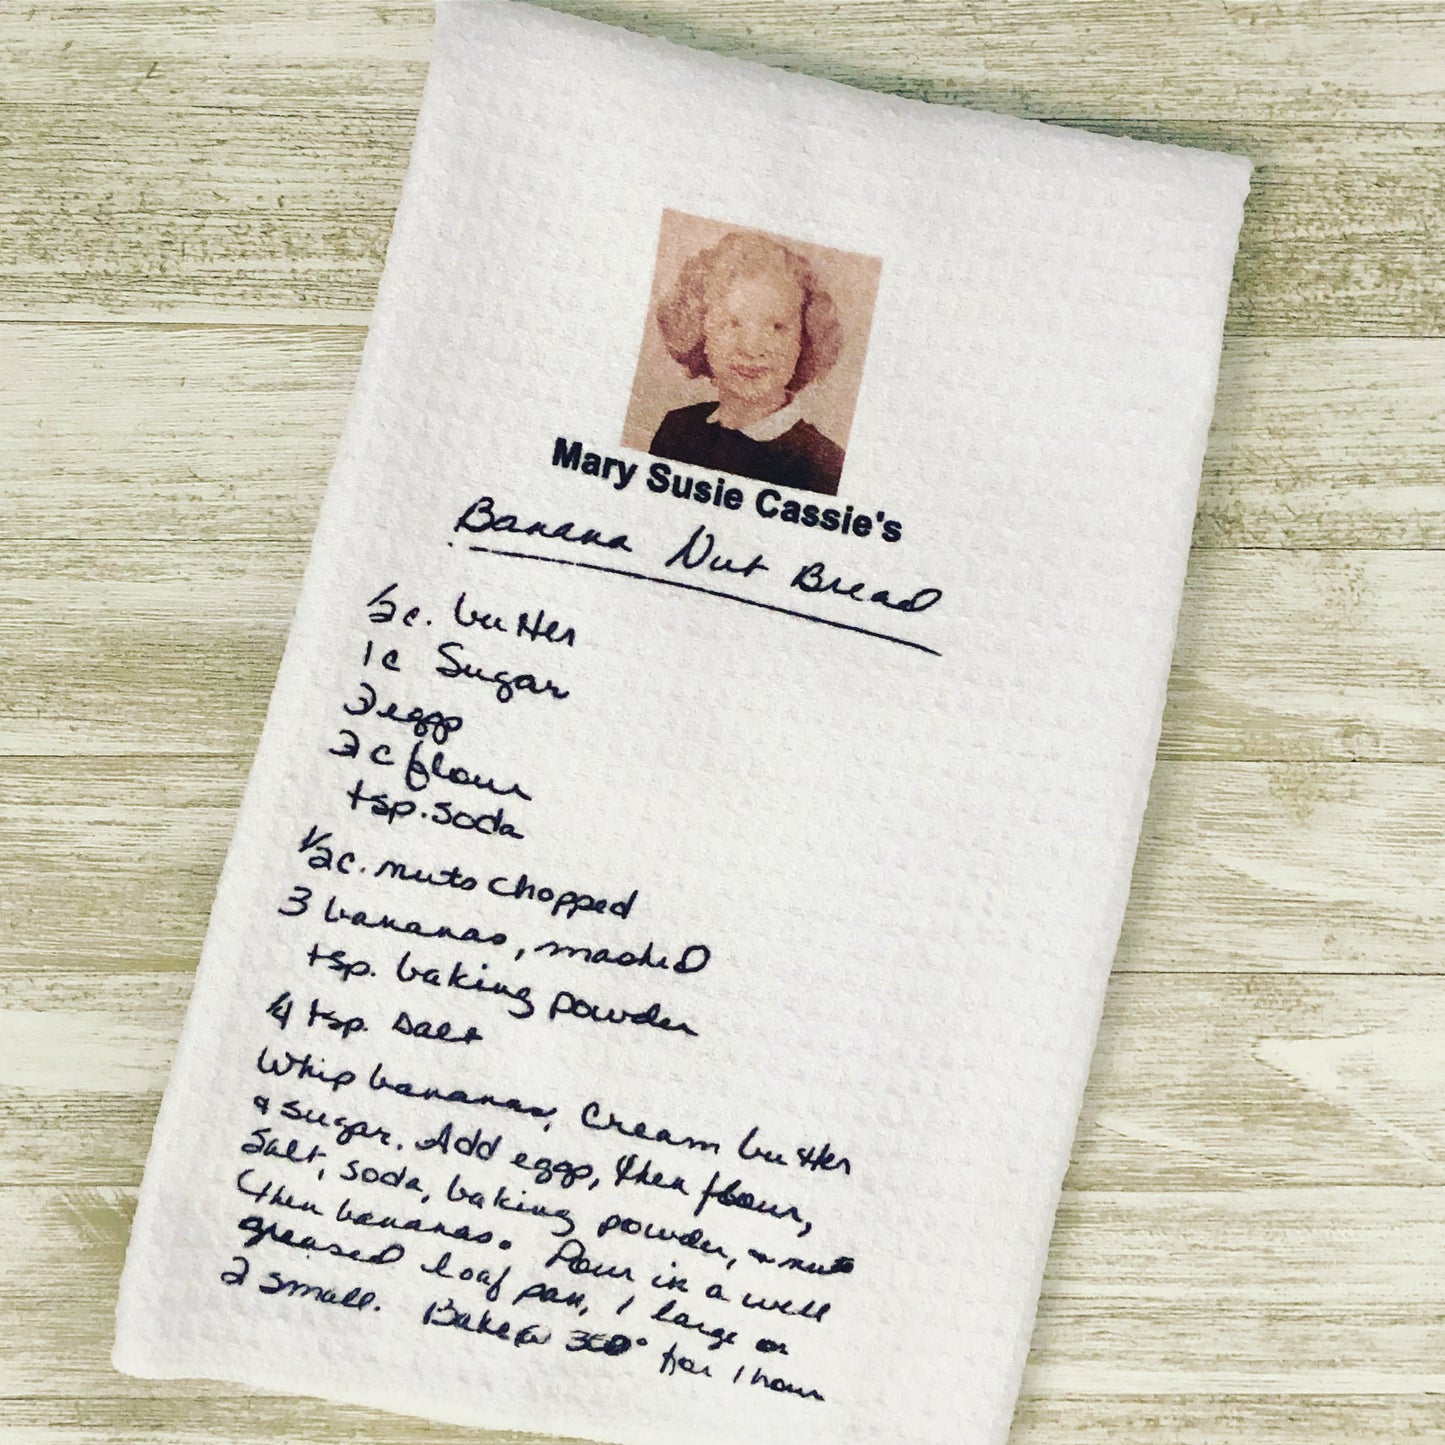 Mary Susie Cassie's
Banana Nut Bread
1/2 c. butter
1 c Sugar
2 eggs
2 c flour
tsp. soda
1/2 c. nuts chopped
3 bananas, mashed
tsp. baking powder
1/4 tsp. salt
Whip bananas, Cream butter
& sugar. Add eggs, then flour,
Salt, soda, baking powder, & nuts
then bananas. Pour in a well
greased loaf pan, 1 large or
2 small. Bake @ 350° for 1 hour